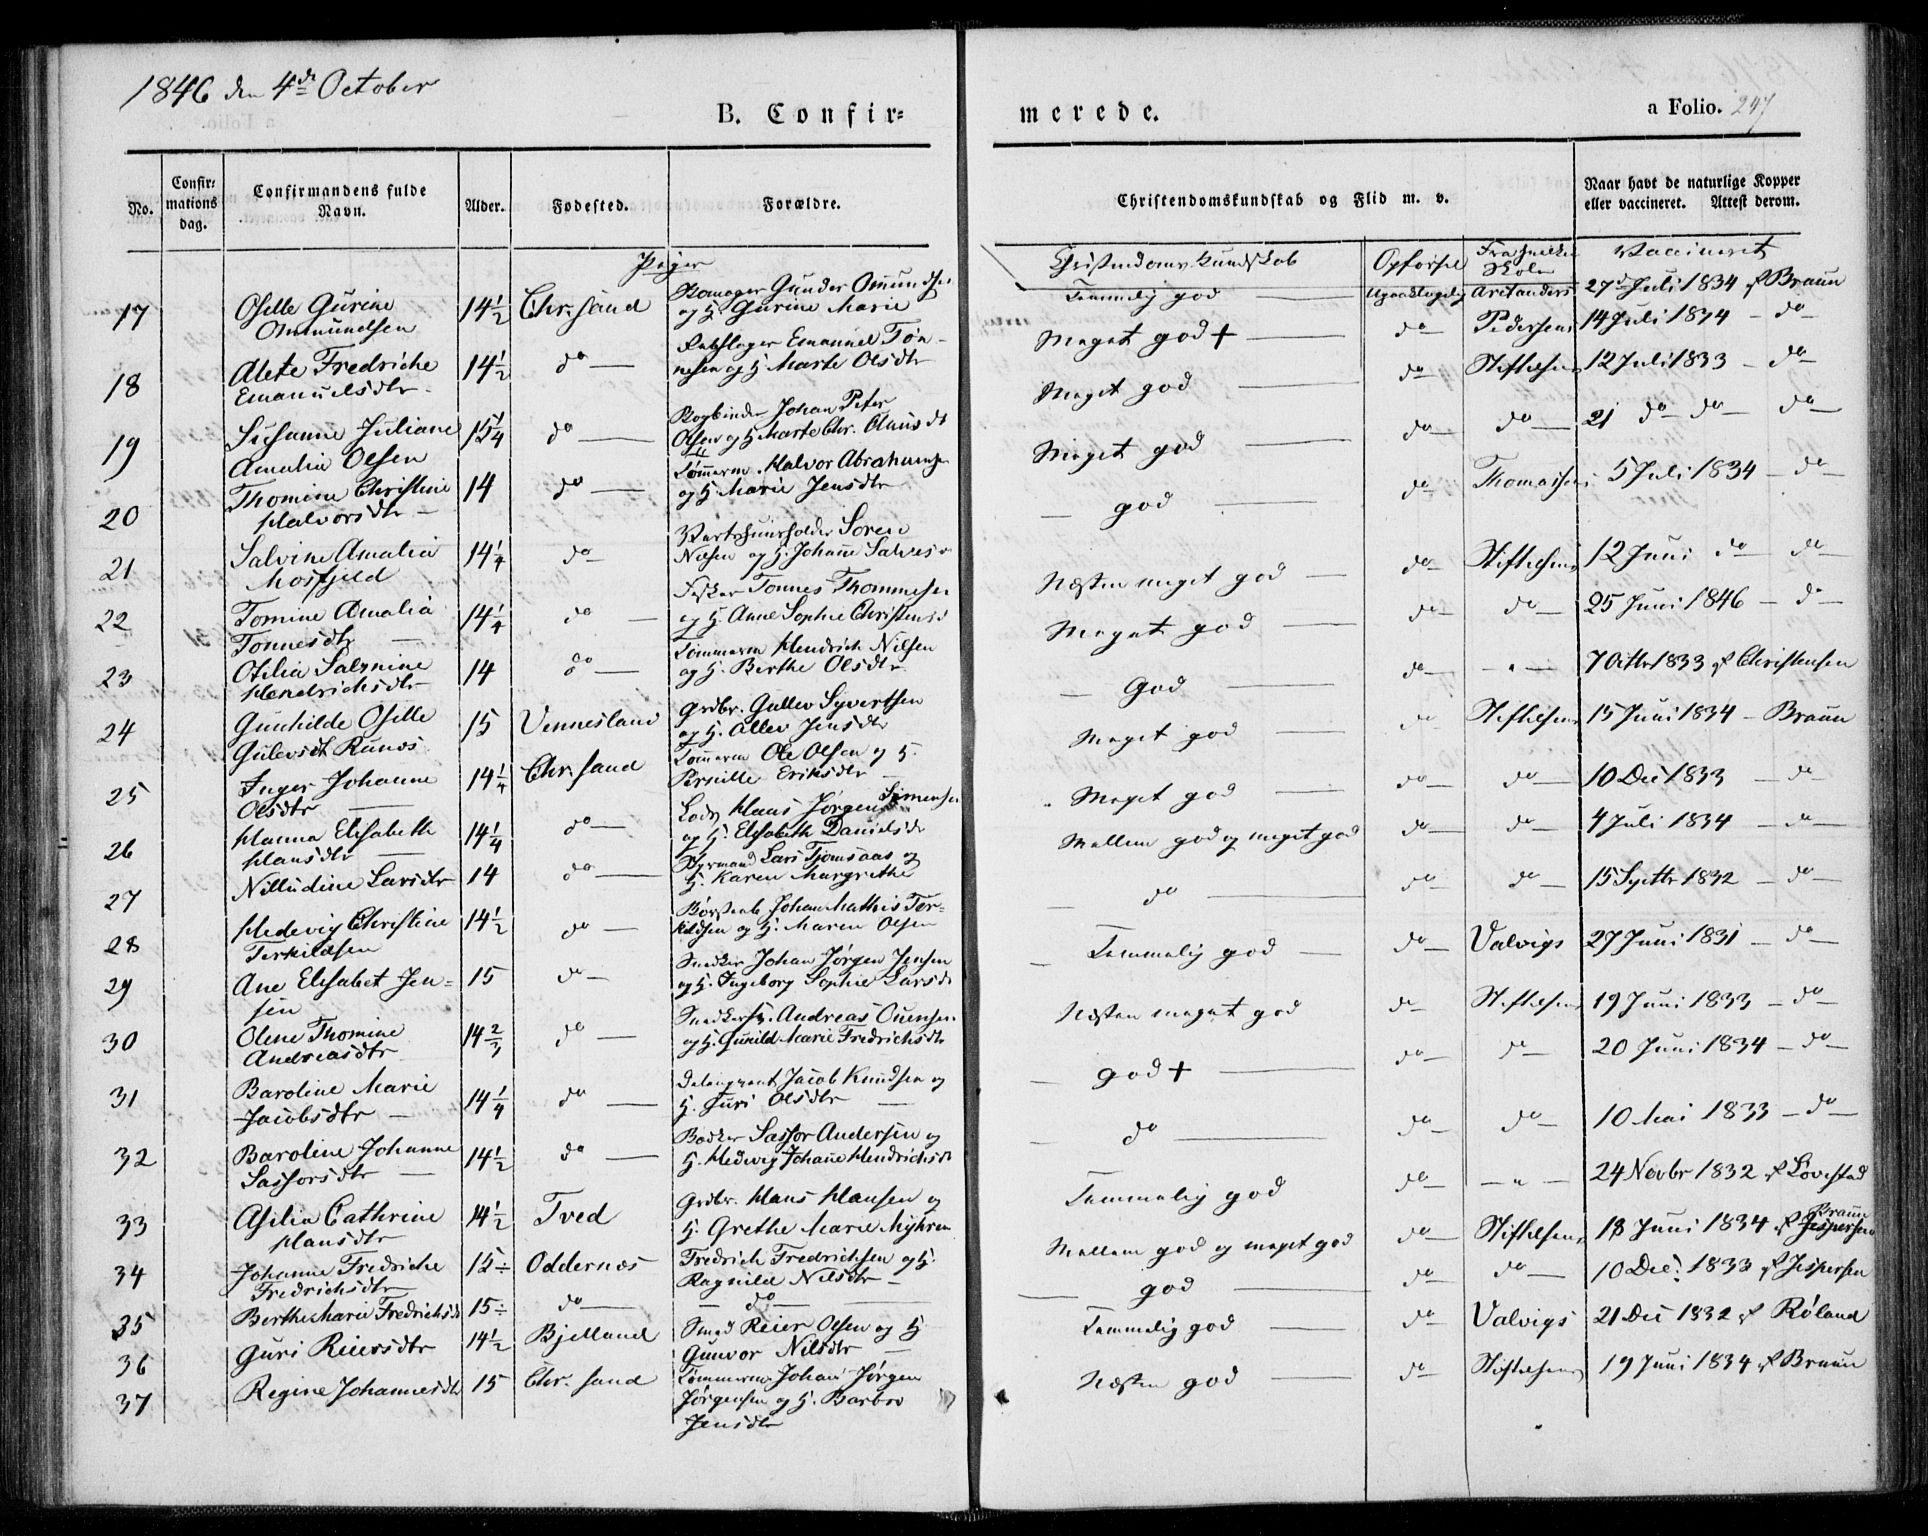 1846 den 4de October
B. Confir=
merede.
a Folio. 247
No.
Confir=
mations
dag.
Confirmandens fulde
Navn.
Alder.
Fødested.
Forældre.
Christendomskundskab og Flid m. v.
Naar havt de naturlige Kopper
eller vaccineret. Attest derom.
Piger
Christendoms Kundskab
Opførsel
Fra hvilken
Skole
Vaccineret
17 Oselle Gurine 14½ Chr.sand Gunder Omundsen Temmelig god Upaaklagelig 27d Juli 1834 af Braun
Ommundsen og H. Gurine Marie
18 Alete Fredriche 14½ do Emanuel Tøn- Meget god + do Pedersens 14 Juli 1834 - do
Emanuelsdtr. nesen og H. Marte Olsdtr
19 Susanne Juliane 15¼ do Bogbinder Johan Peter Meget god do Steffelsens 12 Juli 1833 - do
Amalia Olsen Olsen og H. Marte Chr. Clausdt
20 Thomine Christine 14 do Tømmerm. Halvor Abrahamsen Meget god do do 21 do do do
Halvorsdtr og H. Marie Jensdtr
21 Salvine Amalia 14¼ do Søren god do Thomassens 5 Juli 1834 - do
Mosfjeld og H. Johanne
22 Tomine Amalia 14¼ do Fisker Tønnes Thommesen Næsten meget god do Steffelsens 12 Juni do do
Tønnesdtr og H. Anne Sophie Christensd
23 Otilia 14 do Tømmerm Hendrich Nilsen Meget god do do 25 Juni 1846 - do
Hendrichsdtr og H. Berthe Olsdtr
24 Gunhilde Oselle 15 Vennesland Grdbr. Gullev Syvertsen God do 7 Octbr 1833 af Christensen
Gulevsdt Runos og H. Jensdtr
25 Inger Johanne 14¼ Chr.sand Tømmerm Ole Olsen og H. Meget god do Steffelsens 15 Juni 1834 - Braun
Olsdtr Pernille Eriksdtr
26 Hanna Elisabeth 14¼ do Lods Hans Jørgen Simensen Meget god do do 10 Dec 1833 - do
Hansdtr og H. Elisabeth Danielsdt
27 Nilludine Larsdtr 14 do Styrmand Lars Tjomsaas og Mellem god og meget god do do 4 Juli 1834 - do
H. Karen Margrethe
28 Hedevig Christine 14½ do Johan Mathis Ter- do do do 15 Septbr 1832 - do
Terkildsen kildsen og H. Maren Olsen
29 Ane Elisabet Jen- 15 do Snedker Johan Jørgen Jensen Temmelig god do Valvigs 27 Juni 1831 - do
sen og H. Ingeborg Sophie Larsdt
30 Olene Thomine 14⅔ do Andreas Ouensen Næsten meget god do Steffelsens 19 Juni 1833 - do
Andreasdtr og H. Gunild Marie Fredrichsdtr
31 Baroline Marie 14¼ do Jacob Knudsen og god + do do 20 Juni 1834 - do
Jacobsdtr H. Guri Olsdtr
32 Baroline Johanne 14½ do Bødker Sasfor Andersen og do do do 10 Mai 1833 - do
Sasforsdtr H. Hedevig Johanne Hendrichsdt
33 Asilia Cathrine 14½ Tved Grdbr. Hans Hansen og Temmelig god do 24 Novbr 1832 af Lovestad
Hansdtr H. Grethe Marie Myhren
34 Johanne Fredriche 15 Oddernes Fredrich Fredrichsen og H. Mellem god og meget god do Steffelsens 18 Juni 1834 af Jespersen
Braun
Fredrichsdtr Ragnild Nilsdtr
35 Berthe Marie Fredrichsd 15 do do god do do 10 Dec. 1833 af Jespersen
36 Guri Reiersdtr 14½ Bjelland Smed Reier Olsen og H. Temmelig god do Valvigs 21 Dec 1832 af Røland
Gunvor Nilsdtr
37 Regine Johannesdtr 15 Chr.sand Tømmerm Johan Jørgen Næsten god do Steffelsens 19 Juni 1834 af Braun
Jørgensen og H. Barbro
Jensdtr